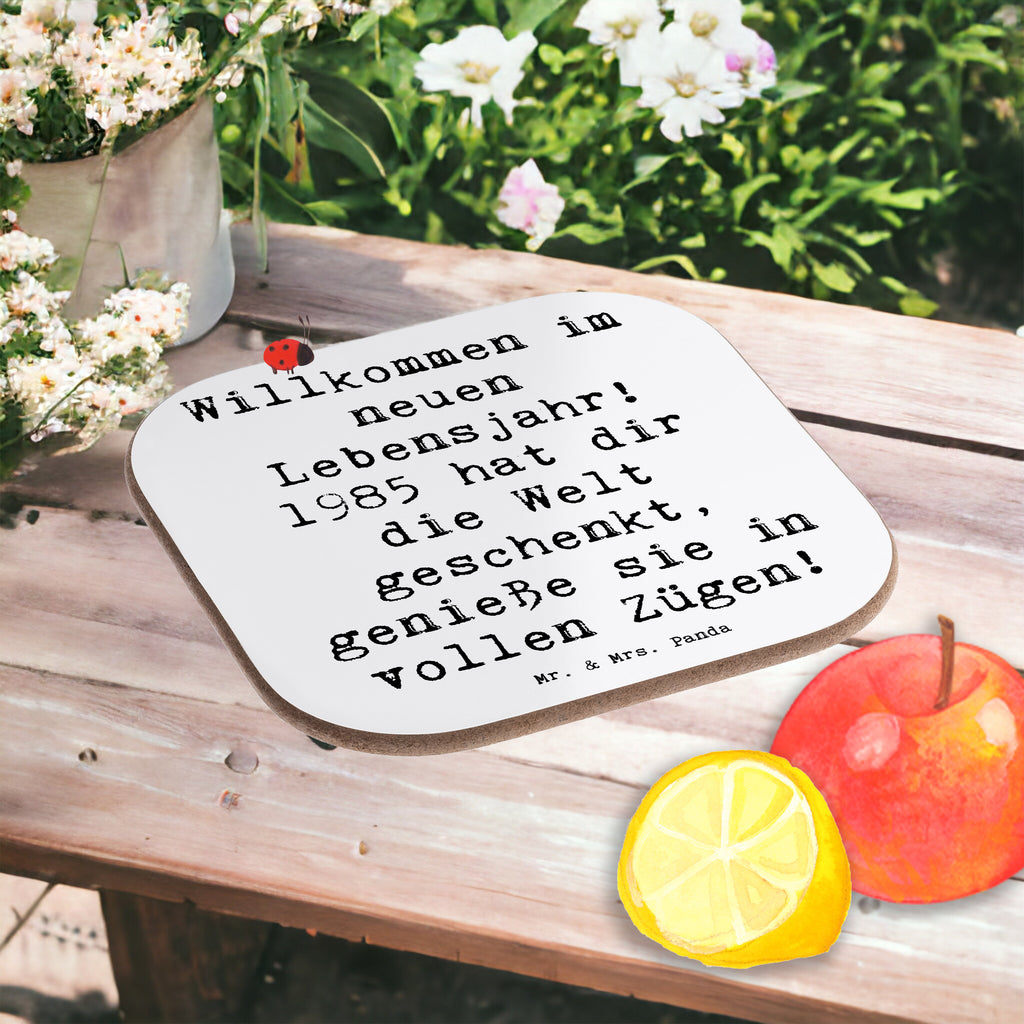 Willkommen im
neuen
Lebensjahr!
1985 hat dir
die Welt
geschenkt,
genieße sie in
vollen Zügen!
Mr. & Mrs. Panda